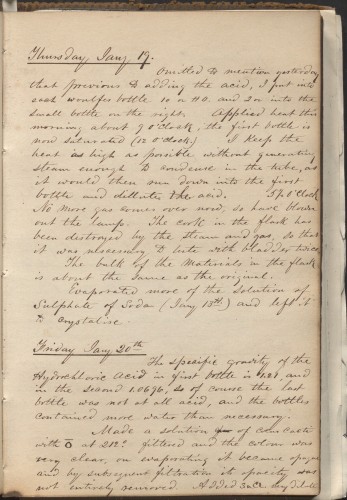 Thursday, Jany 19.
Omitted to mention yesterday
that previous to adding the acid, I put into
each woulfes bottle 10 oz HO. and 2 oz into the
small bottle on the right. Applied heat this
morning about 9 o'clock, the first bottle is
now saturated (12 o'clock) I keep the
heat as high as possible without generating
steam enough to condense in the tube, as
it would then run down into the first
bottle and dillute the acid. 5½ o'clock
No more gas comes over now, so have blown
out the lamp. The cork in the flask has
been destroyed by the steam and gas, so that
it was necessary to lute with bladder twice
The bulk of the materials in the flask
is about the same as the original.
Evaporated more of the solution of
Sulphate of Soda (Jany 18th) and left it
to crystalise.
Friday Jany 20th
The specific gravity of the
Hydrochloric Acid in first bottle is
in the second 1.0696, so of course the last
bottle was not at all acid, and the bottles
contained more water than necessary.
Made a solution of
with at 212° filtered and the colour was
very clear, on evaporating it became opaque
and by subsequent filtration its opacity was
not entirely removed. Added